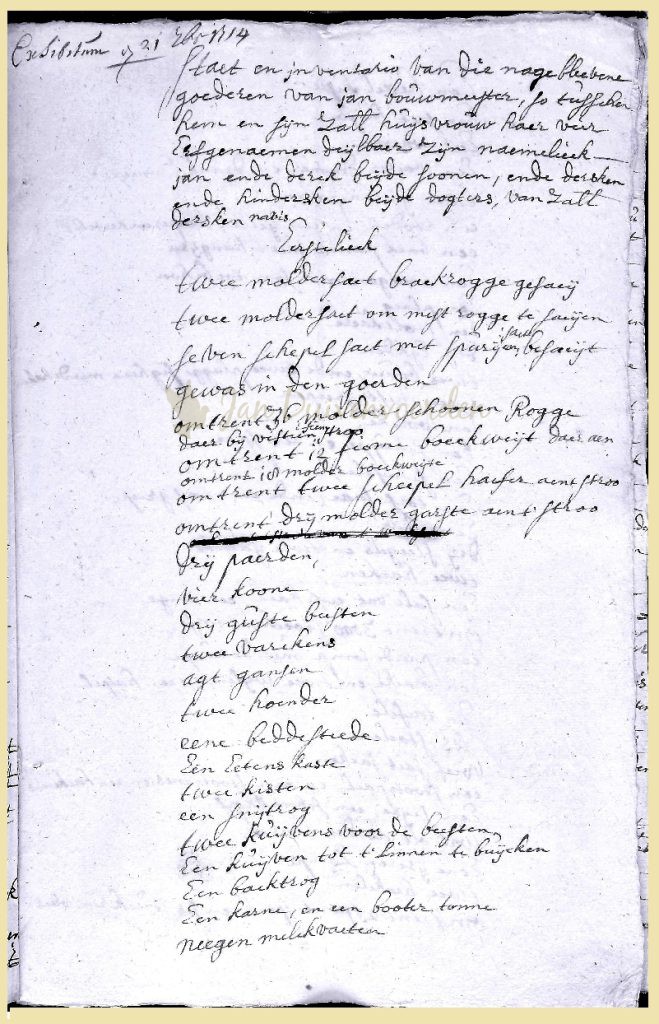 Exhibitum d 21 7br 1714
Staet en jnventario van die nagebleevene
goederen van jan bouwmeister, so tusschen
hem en sijn Zall huijsvrouw haer vier
Erfgenaemen deijlbaer zijn naemelieck
jan ende derck beijde soonen, ende dersken
ende hindersken beijde dogters, van Zall
dersken nabis
Eerstelieck
twee molder saet braekrogge gesaeij
twee moldersaet om mist rogge te saeijen
seven schepel saet met spurijen saet besaeijt
gewas in den goerden
omtrent 36 molder schoonen Rogge
daer bij vestien stroo
omtrent 12 fiome boeckweijt daer aen
omtrent 18 molder boekweijte
omtrent twee scheepel haefer aent stroo
omtrent drij molder garste aent stroo
drij paerden,
vier koone
drij guste beesten
twee varckens
agt gansen
twee hoender
eene beddestede
Een Eetens kaste
twee kisten
een snijtrog
twee kuijvens voor de beesten
Een kuijven tot t' linnen te buijcken
Een backtrog
Een karne, en een booter tonne
neegen melckvaeten